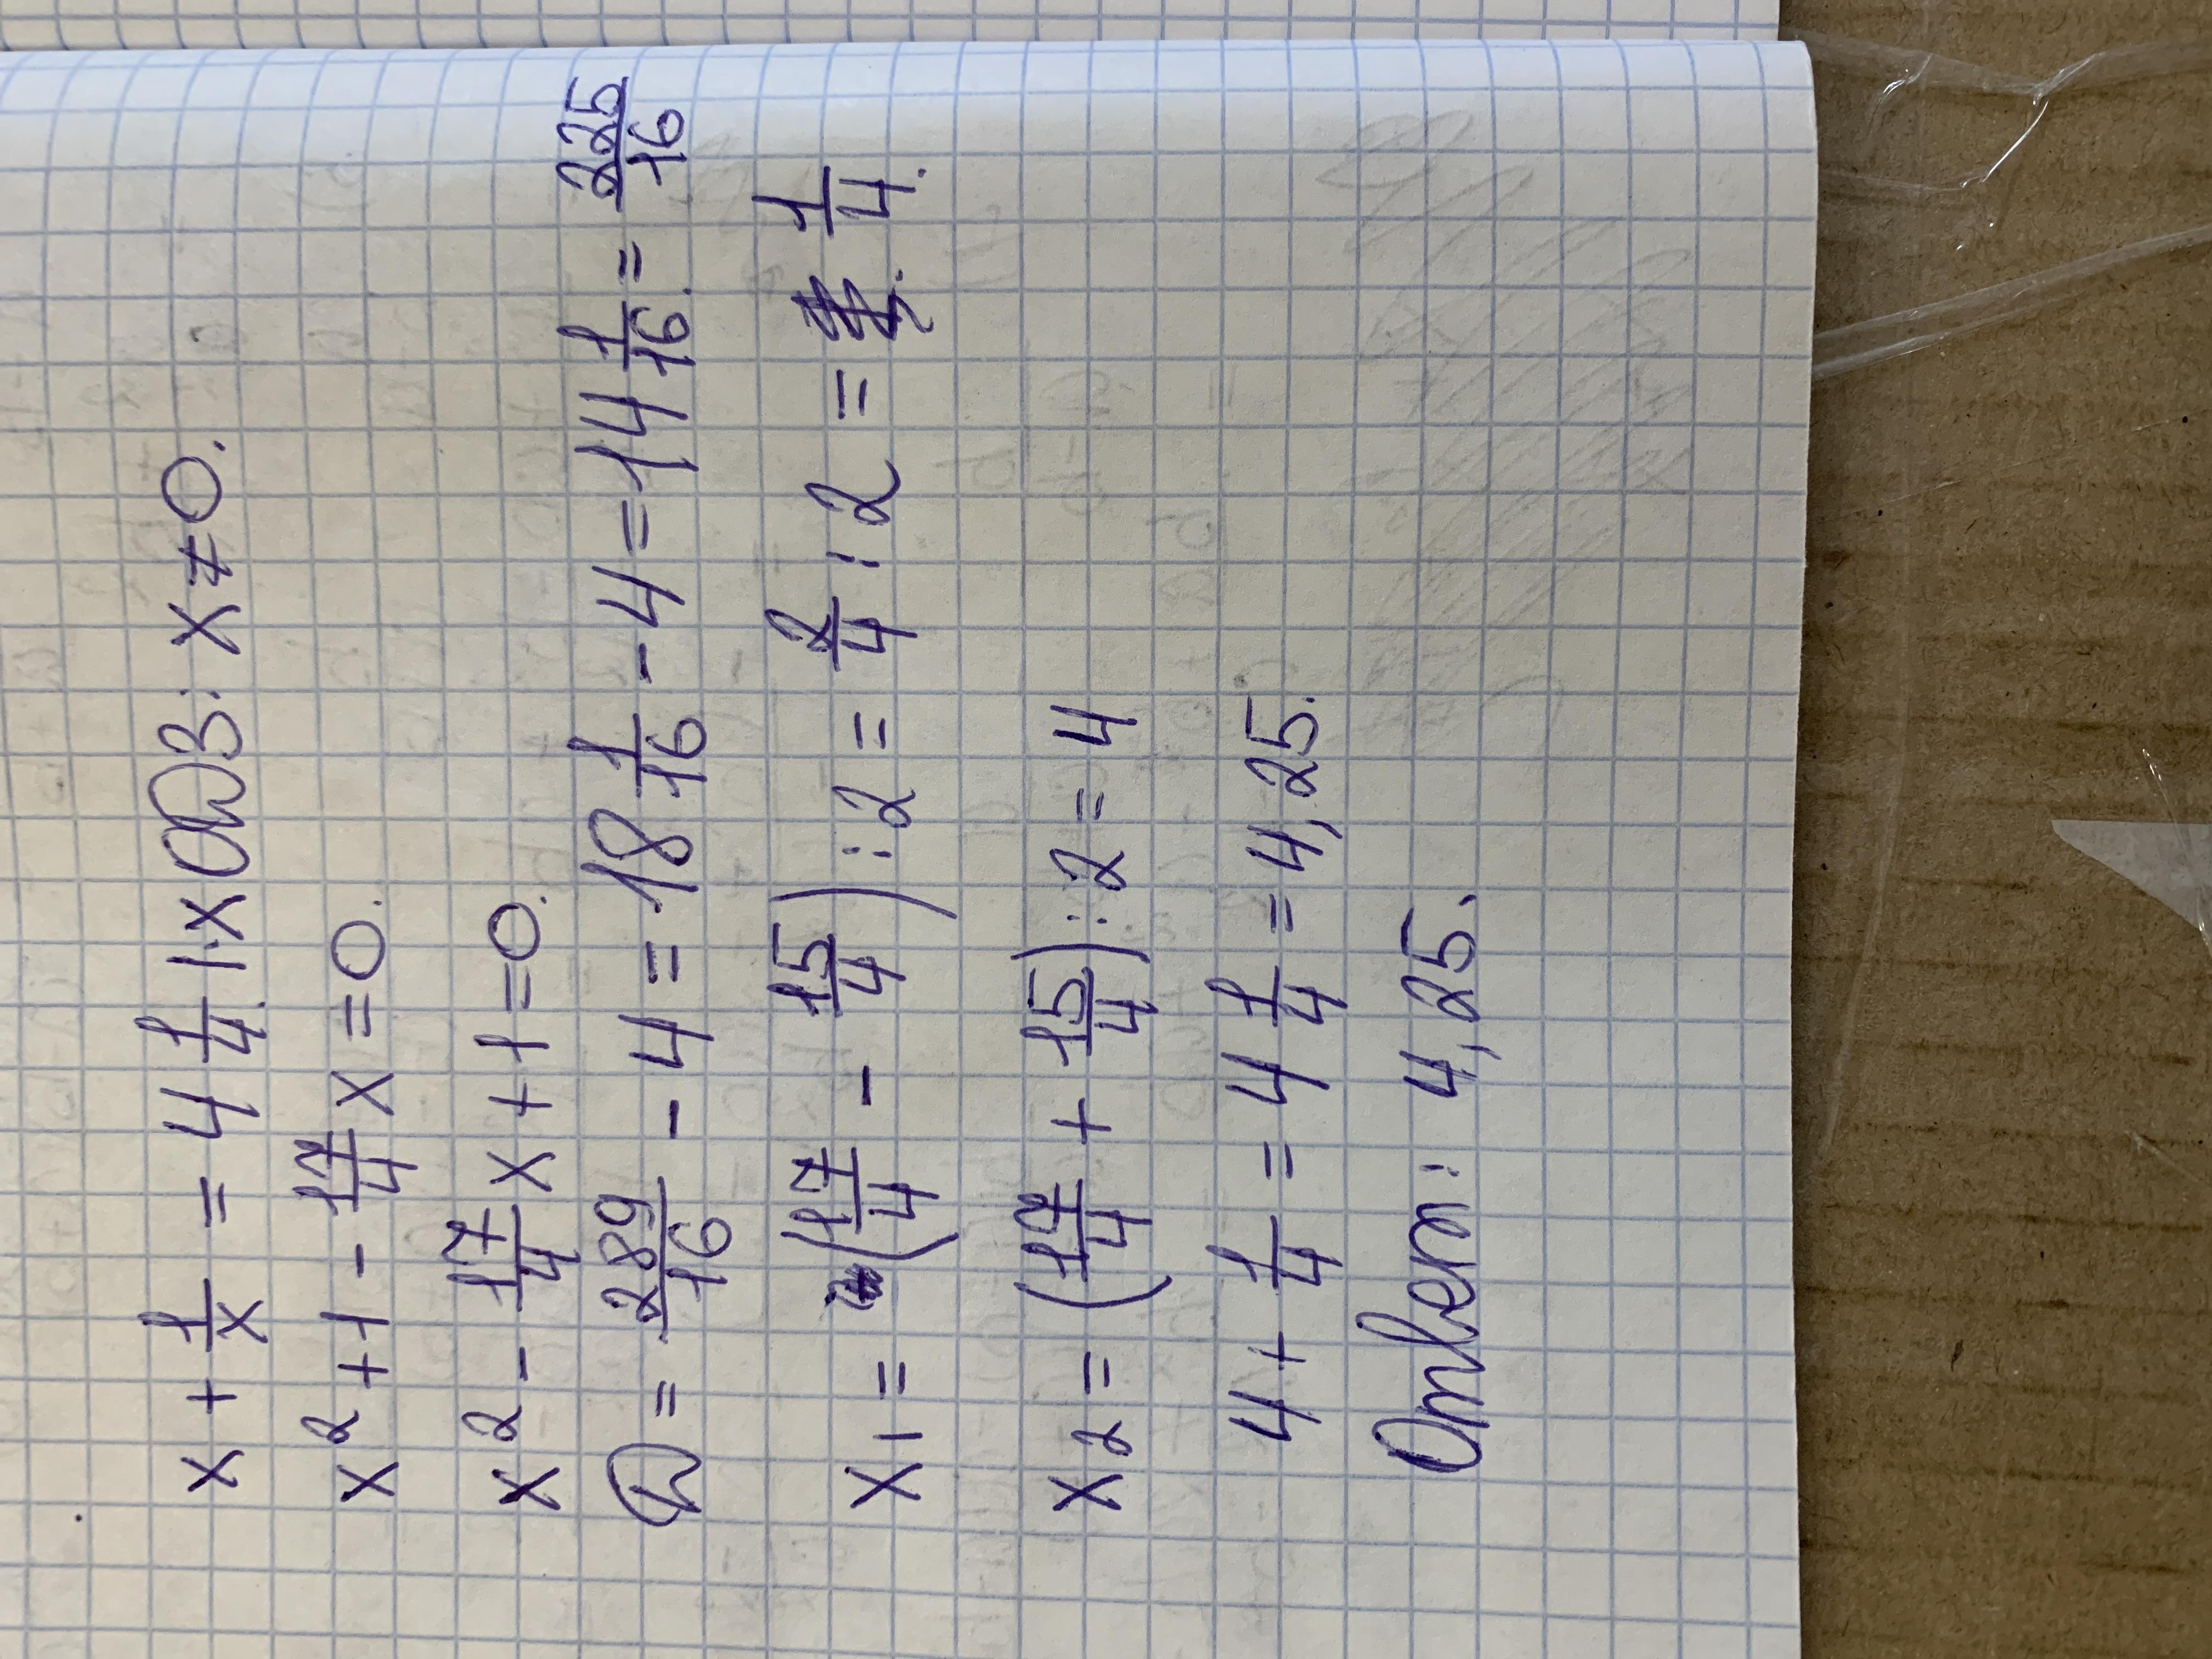 x + 1/x = 4 1/4 |·x ОДЗ: x ≠ 0.
x² + 1 - 17/4 x = 0.
x² - 17/4 x + 1 = 0.
D = 289/16 - 4 = 18 1/16 - 4 = 14 1/16 = 225/16
x₁ = (17/4 - 15/4) : 2 = 2/4 : 2 = 1/4.
x₂ = (17/4 + 15/4) : 2 = 4
4 + 1/4 = 4 1/4 = 4,25.
Ответ: 4,25.